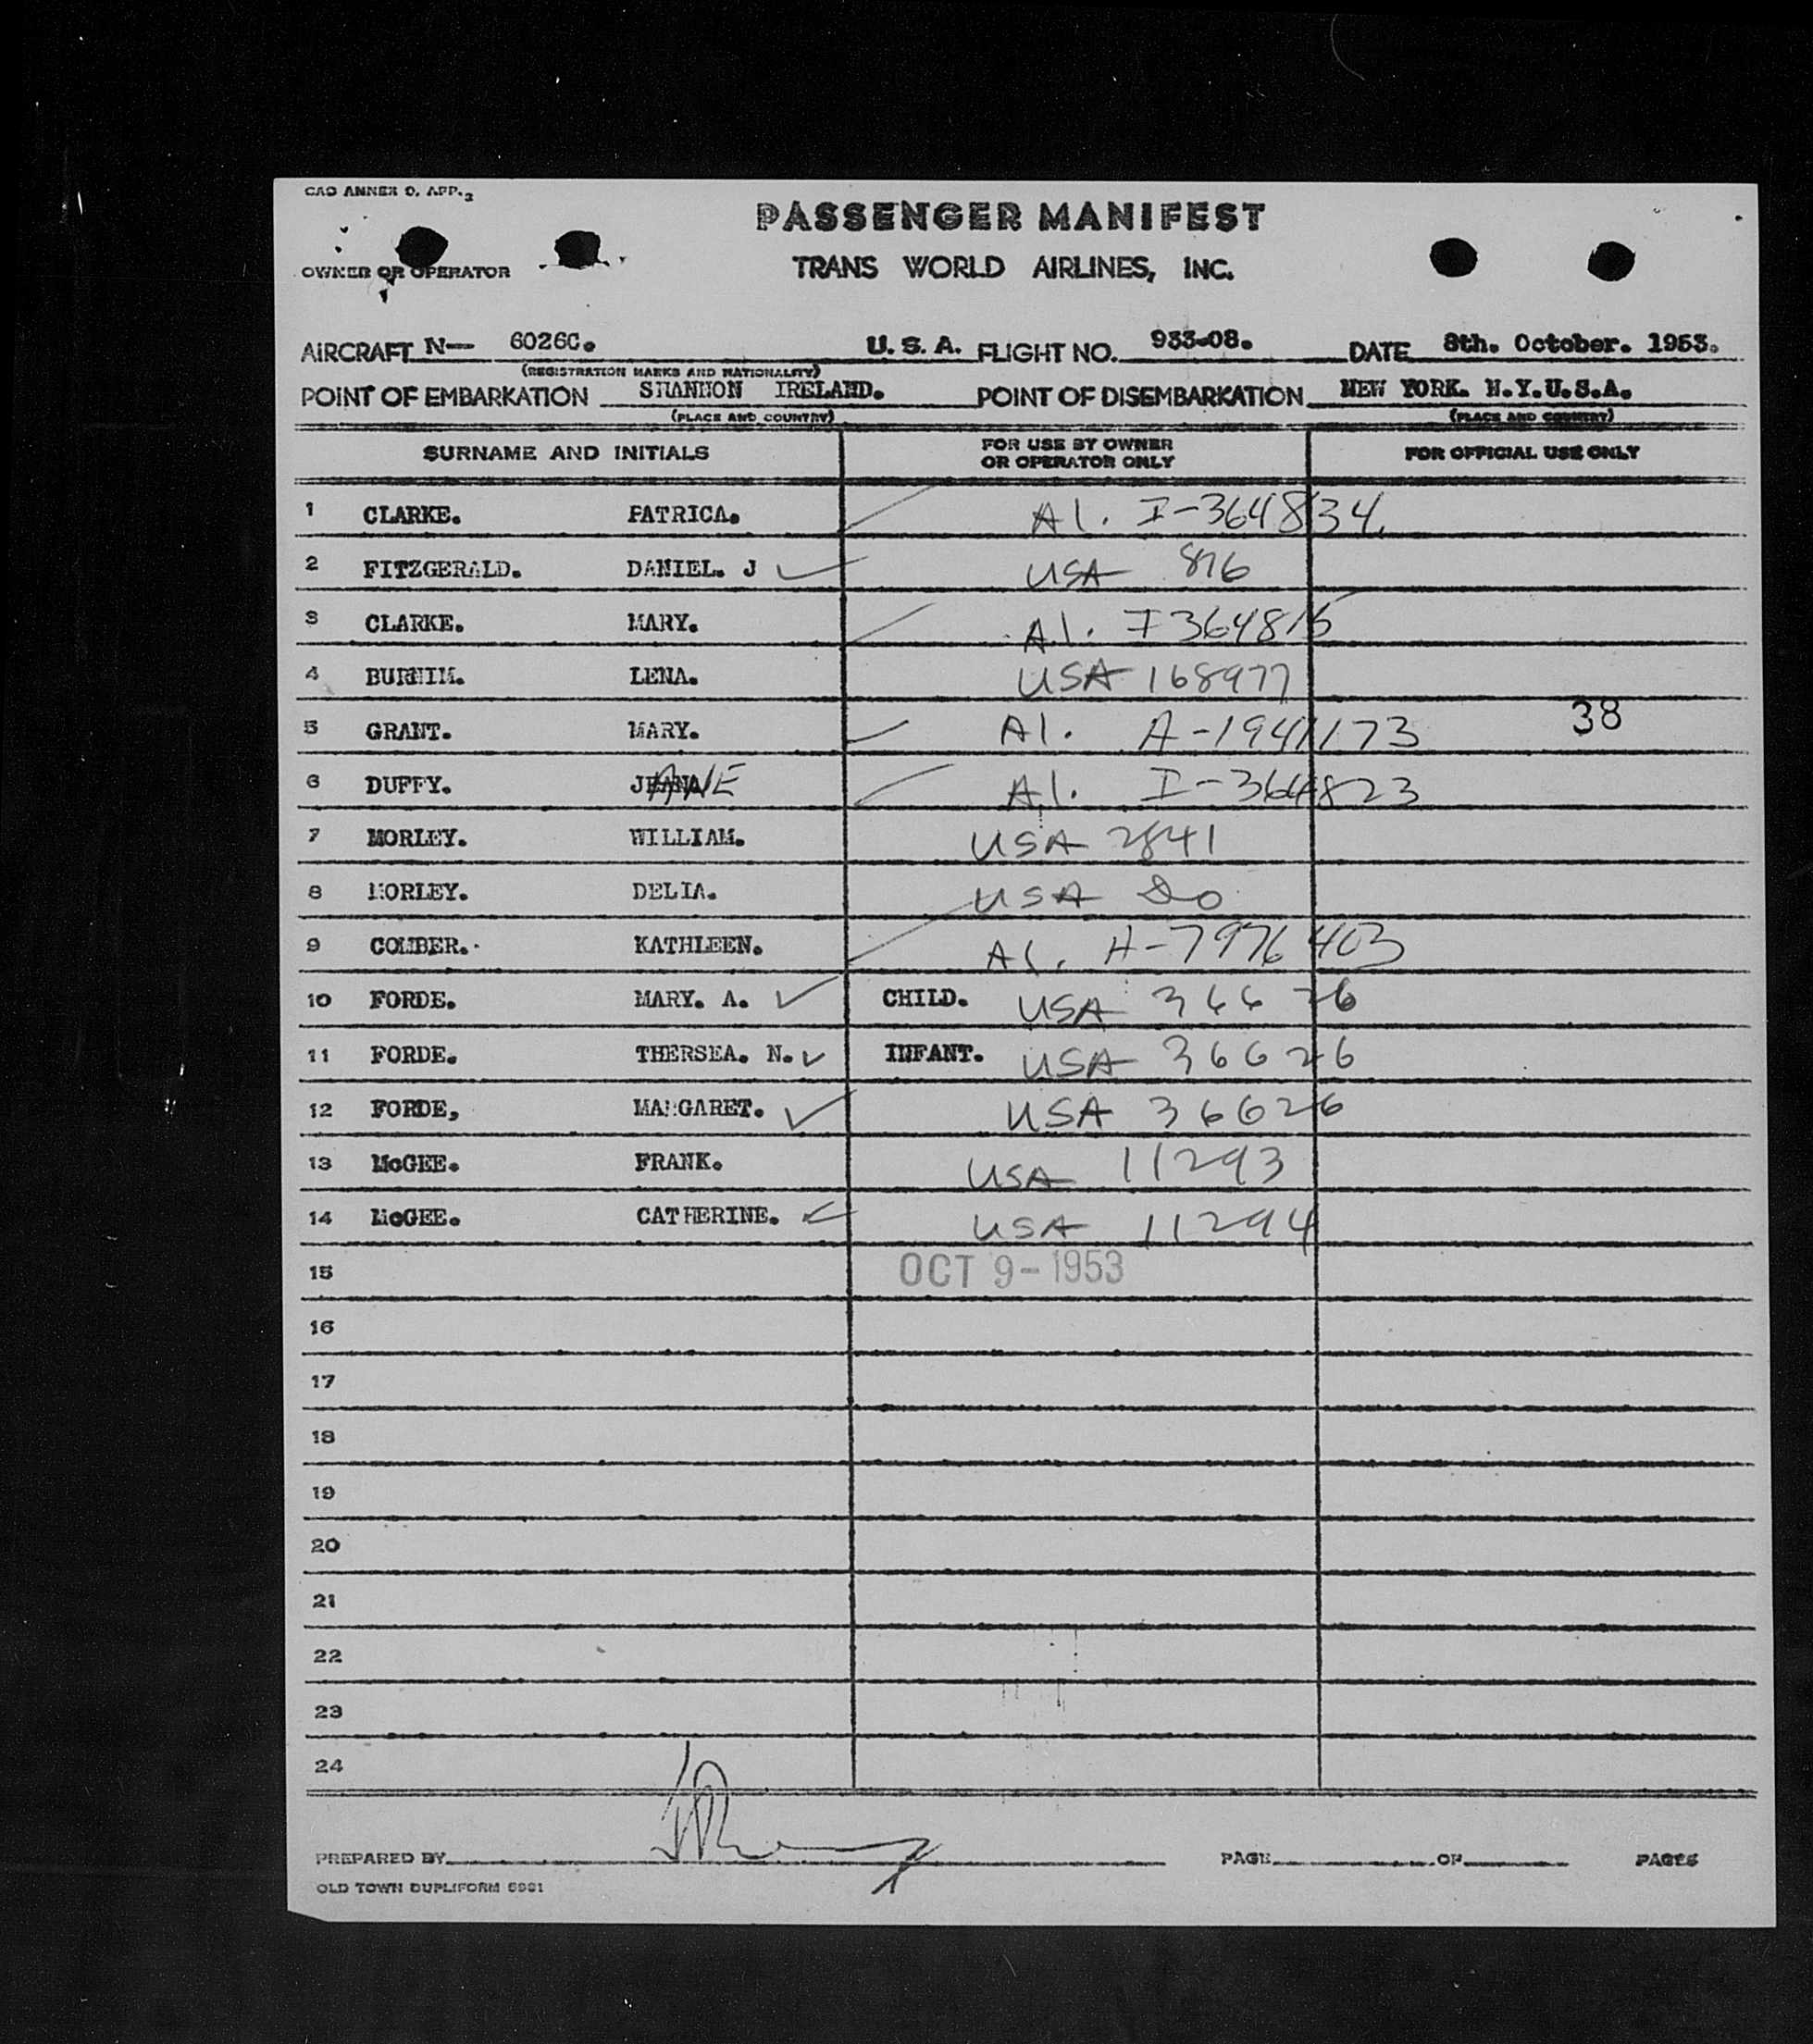 PASSENGER MANIFEST
OWNER OR OPERATOR
TRANS WORLD AIRLINES, INC.
AIRCRAFT N— 6026C. U. S. A. FLIGHT NO. 933-08. DATE 8th. October. 1953.
(REGISTRATION MARKS AND NATIONALITY)
POINT OF EMBARKATION SHANNON IRELAND. POINT OF DISEMBARKATION NEW YORK. N.Y.U.S.A.
(PLACE AND COUNTRY) (PLACE AND COUNTRY)
SURNAME AND INITIALS FOR USE BY OWNER OR OPERATOR ONLY FOR OFFICIAL USE ONLY
1 CLARKE. PATRICA. Al. I-364834
2 FITZGERALD. DANIEL. J USA 876
3 CLARKE. MARY. Al. I364815
4 BURNIM. LENA. USA 168977
5 GRANT. MARY. Al. A-1941173 38
6 DUFFY. JANE Al. I-364823
7 MORLEY. WILLIAM. USA 2841
8 MORLEY. DELIA. USA Do
9 COMBER. KATHLEEN. Al. A-7976403
10 FORDE. MARY. A. CHILD. USA 36626
11 FORDE. THERSEA. N. INFANT. USA 36626
12 FORDE, MARGARET. USA 36626
13 McGEE. FRANK. USA 11293
14 McGEE. CATHERINE. USA 11294
15 OCT 9-1953
16
17
18
19
20
21
22
23
24
PREPARED BY PAGE OF PAGES
OLD TOWN DUPLIFORM